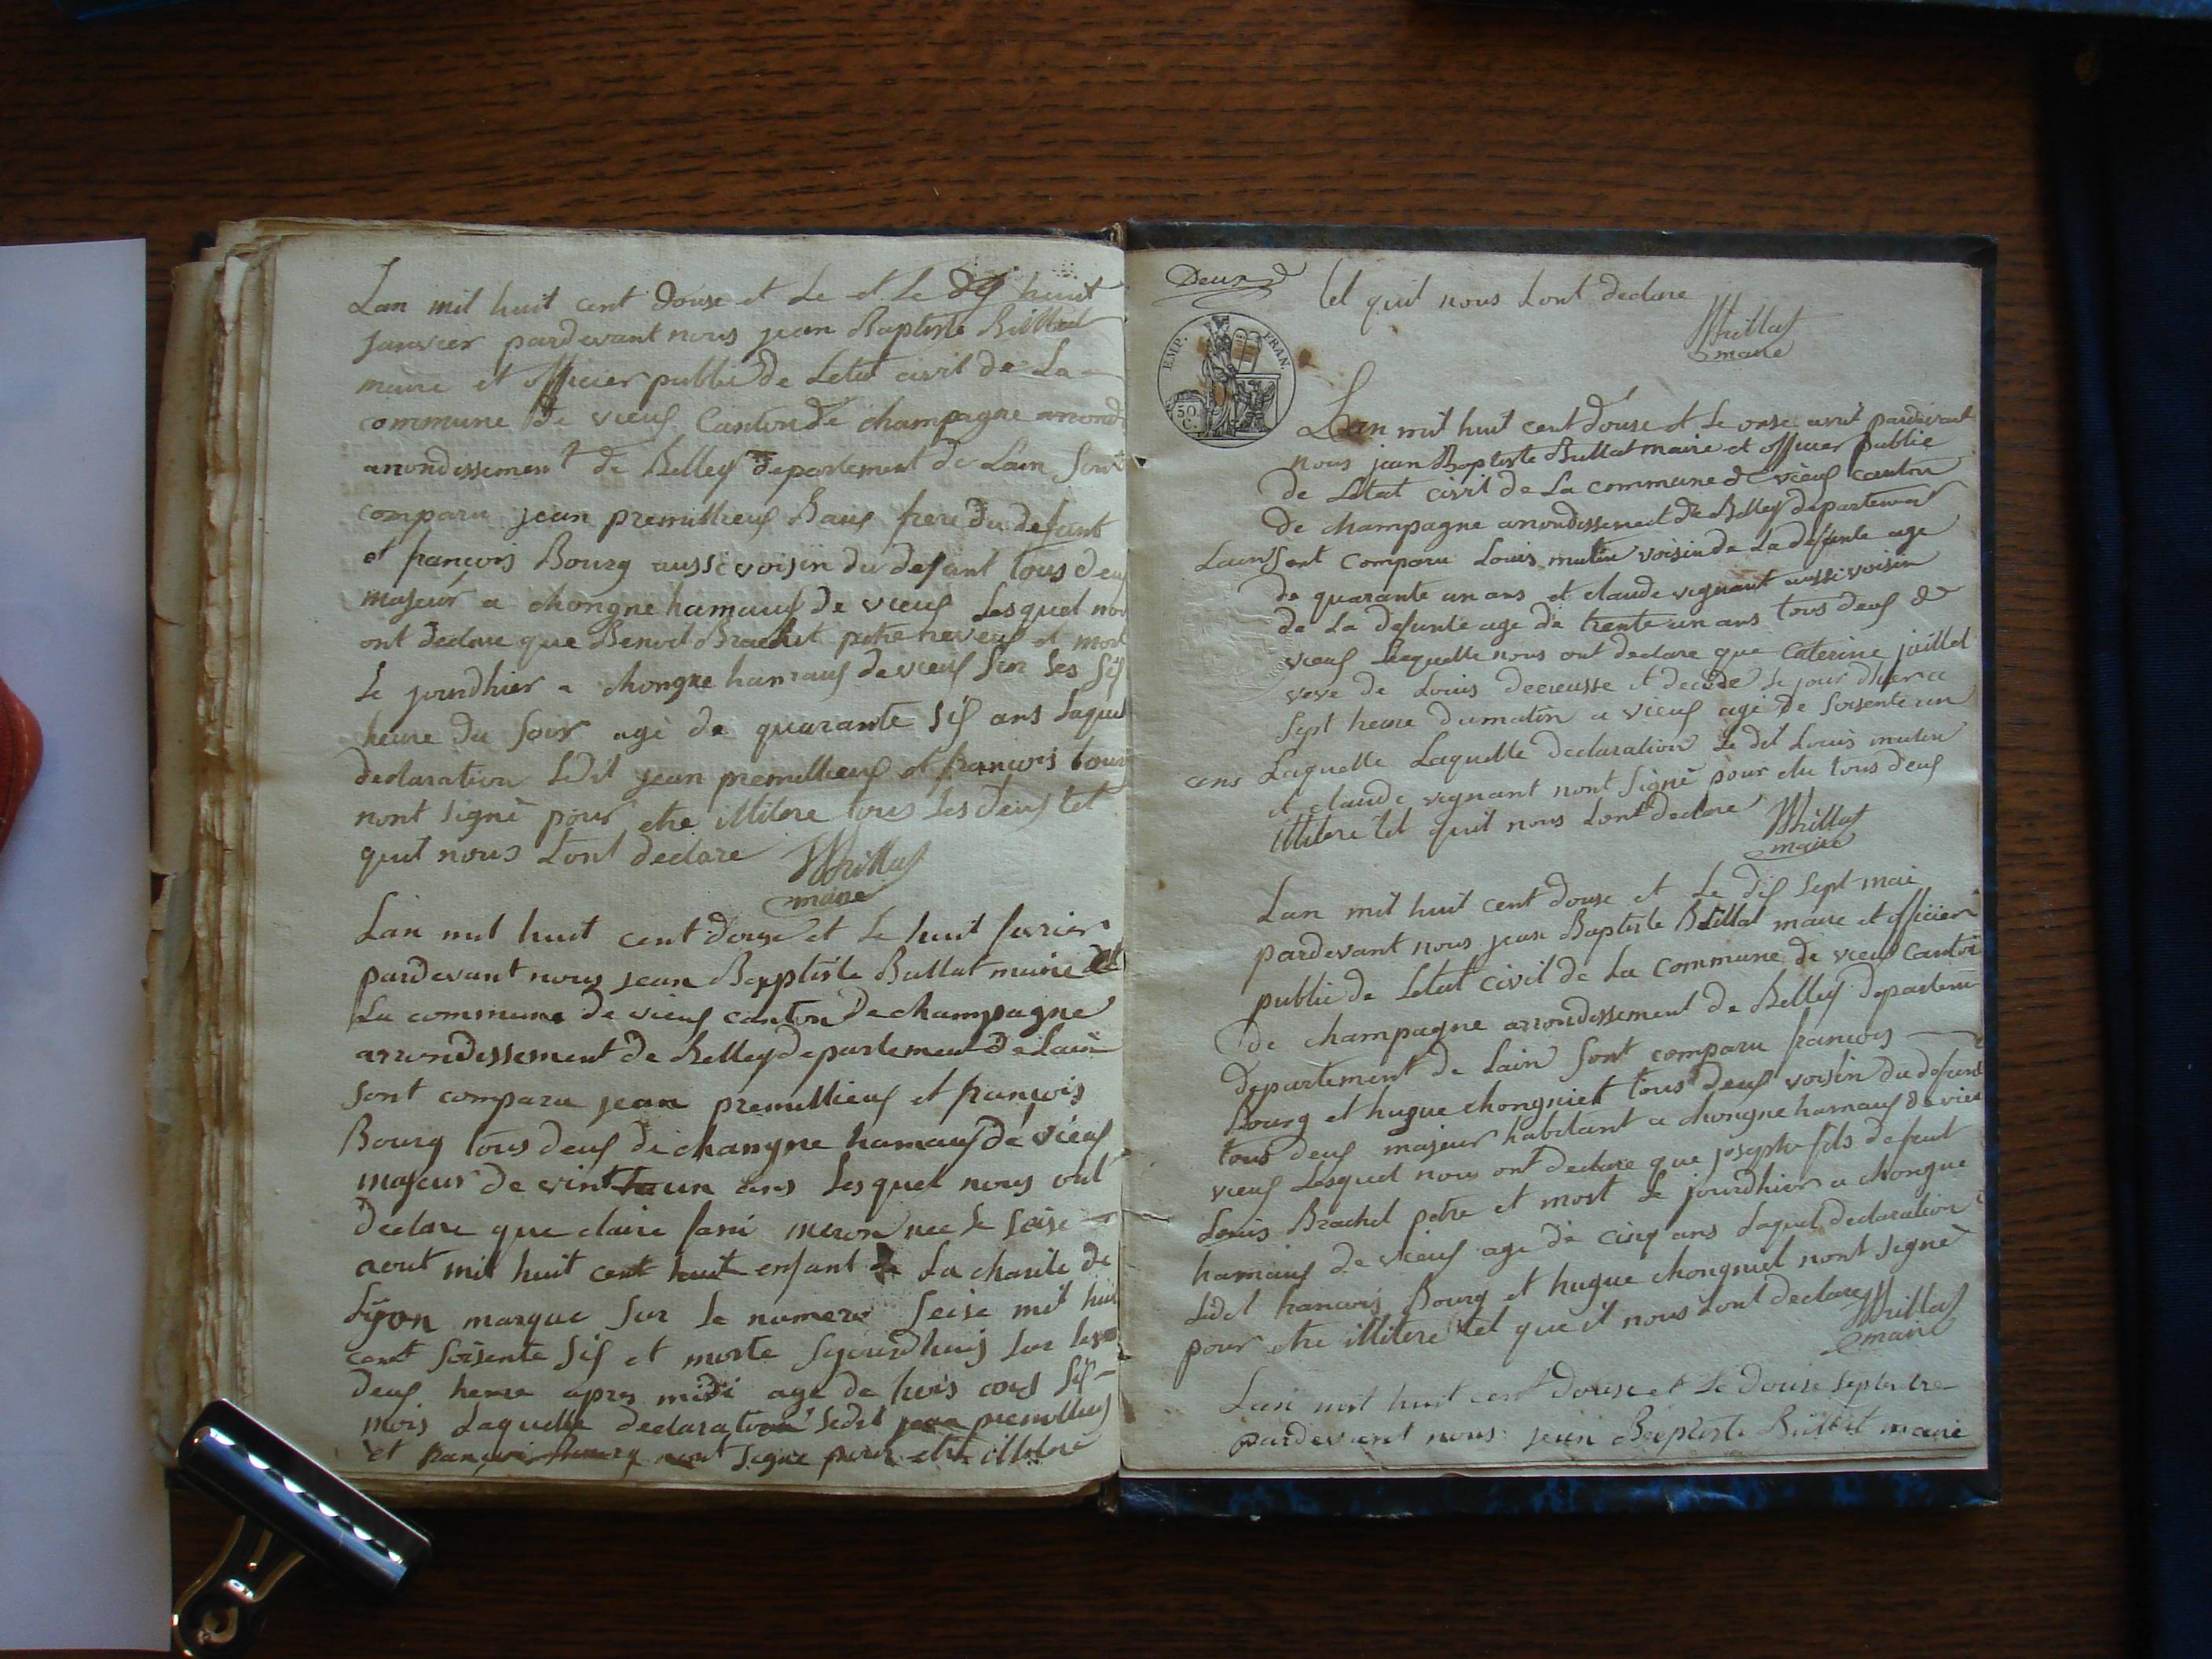 Lan mil huit cent douse et Le et Le dis huit
janvier pardevant nous jean Baptiste Billiat
maire et officier public de Letat civil de La
commune de vieus Canton de champagne arrond
arrondissement de Belley departement de Lain Sont
comparu jean premillieus Baus frere du defunt
et françois Bourg aussi voisin du defunt tous deus
majeur a chongne hamaus de vieus Lesquel nous
ont declare que Benoit Brachet neveus et mort
Le jourdhier a chongne hamaus de vieus Sur Les Sis
heure du Soir age de quarante Sis ans Laquel
declaration Ledit jean premillieus et françois bourg
nont Signé pour etre illitere tous Les deus tel
quil nous Lont declare
maire
Lan mil huit cent douse et Le huit fevrier
pardevant nous jean Baptiste Billiat maire de
La commune de vieus canton de champagne
arrondissement de Belley departement de Lain
Sont comparu jean premillieus et françois
Bourg tous deus de chongne hamaus de vieus
majeur de vint un ans Lesquel nous ont
declare que claire meron nee Le Saise
aout mil huit cent huit enfant de La charite de
Lyon marque Sur Le numero Seise mil huit
cent Soisente Sis et morte Sur Les
deus heure apres midi age de trois ans Sis
mois Laquelle declaration Ledit jean premillieus
et françois Bourg nont Signe pour etre illitere
Deus
tel quil nous Lont declare
maire
EMP. FRAN.
50 C.
Lan mil huit cent douse et Le onse avril pardevant
nous jean Baptiste Billiat maire et officier public
de Letat civil de La commune de vieus canton
de champagne arrondissement de Belley departement
Lain Sont comparu Louis mutin voisin de La defunte age
de quarante un ans et claude vignant aussi voisin
de La defunte age de trente un ans tous deus de
vieus Lesquelle nous ont declare que Caterine jaillet
veve de Louis et decede Le jour dhier a
Sept heure du matin a vieus age de Soisente un
ans Laquelle Laquelle declaration Le dit Louis mutin
et claude vignant nont Signé pour etre tous deus
illitere tel quil nous Lont declare
maire
Lan mil huit cent douse et Le dis Sept mai
pardevant nous jean Baptiste Billiat maire et officier
public de Letat civil de La commune de vieus Canton
de champagne arrondissement de Belley departem
departement de Lain Sont comparu francois
Bourg et hugue chongniet tous deus voisin du defunt
tous deus majeur habitant a chongne hamaus de vieu
vieus Lesquel nous ont declare que joseph fils de feut
Louis Brachet et mort Le jourdhier a chongne
hamaus de vieus age de cinq ans Laquel declaration
Ledit francois Bourg et hugue chongniet nont Signé
pour etre illitere tel que il nous Lont declare
maire
Lan mil huit cent douse et Le douse Septembre
pardevant nous jean Baptiste Billiat maire